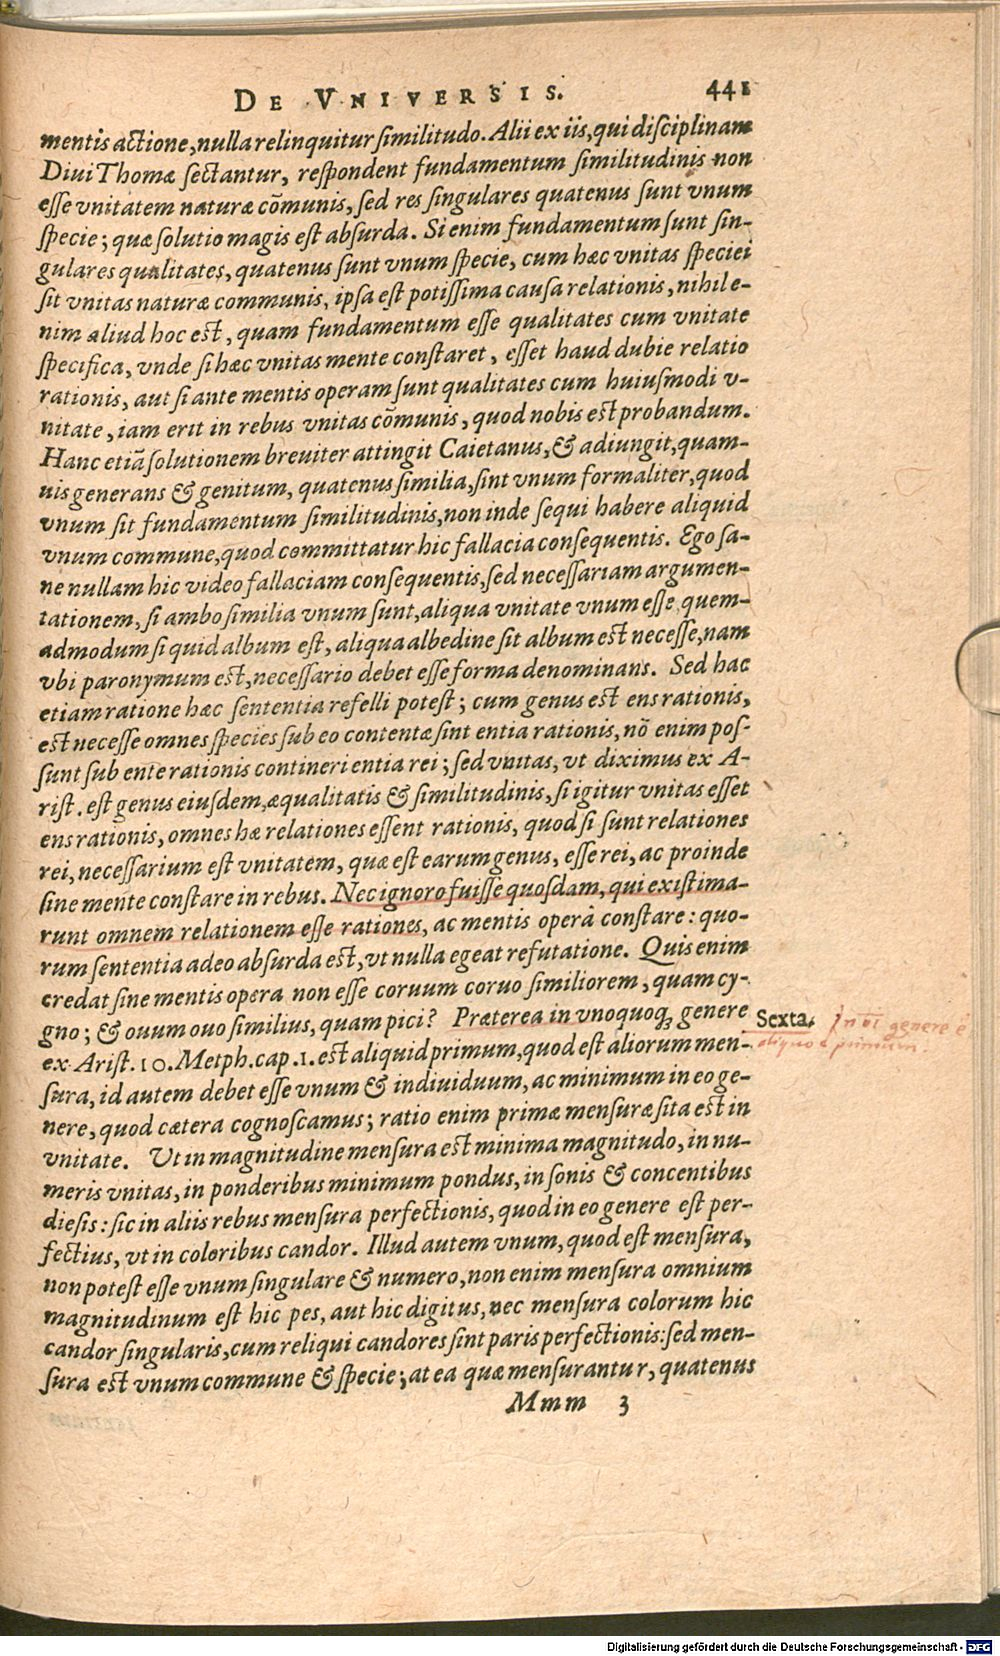 DE VNIVERSIS. 441
mentis actione, nulla relinquitur similitudo. Alii ex iis, qui disciplinam
Diui Thomæ sectantur, respondent fundamentum similitudinis non
esse vnitatem naturæ cõmunis, sed res singulares quatenus sunt vnum
specie; quæ solutio magis est absurda. Si enim fundamentum sunt sin-
gulares qualitates, quatenus sunt vnum specie, cum hæc vnitas speciei
sit vnitas naturæ communis, ipsa est potissima causa relationis, nihil e-
nim aliud hoc est, quam fundamentum esse qualitates cum vnitate
specifica, vnde si hæc vnitas mente constaret, esset haud dubie relatio
rationis, aut si ante mentis operam sunt qualitates cum huiusmodi v-
nitate, iam erit in rebus vnitas cõmunis, quod nobis est probandum.
Hanc etiã solutionem breuiter attingit Caietanus, & adiungit, quam-
uis generans & genitum, quatenus similia, sint vnum formaliter, quod
vnum sit fundamentum similitudinis, non inde sequi habere aliquid
vnum commune, quod committatur hic fallacia consequentis. Ego sa-
ne nullam hic video fallaciam consequentis, sed necessariam argumen-
tationem, si ambo similia vnum sunt, aliqua vnitate vnum esse, quem-
admodum si quid album est, aliqua albedine sit album est necesse, nam
vbi paronymum est, necessario debet esse forma denominans. Sed hac
etiam ratione hæc sententia refelli potest; cum genus est ens rationis,
est necesse omnes species sub eo contentæ sint entia rationis, nõ enim pos-
sunt sub ente rationis contineri entia rei; sed vnitas, vt diximus ex A-
rist. est genus eiusdem, æqualitatis & similitudinis, si igitur vnitas esset
ens rationis, omnes hæ relationes essent rationis, quod si sunt relationes
rei, necessarium est vnitatem, quæ est earum genus, esse rei, ac proinde
sine mente constare in rebus. Nec ignoro fuisse quosdam, qui existima-
runt omnem relationem esse rationes, ac mentis operâ constare: quo-
rum sententia adeo absurda est, vt nulla egeat refutatione. Quis enim
credat sine mentis opera non esse coruum coruo similiorem, quam cy-
gno; & ouum ouo similius, quam pici? Præterea in vnoquoq; genere
Sexta. In oi genere è
aliquod primum.
ex Arist. 10. Metph. cap. 1. est aliquid primum, quod est aliorum men-
sura, id autem debet esse vnum & indiuiduum, ac minimum in eo ge-
nere, quod cætera cognoscamus; ratio enim primæ mensuræ sita est in
vnitate. Ut in magnitudine mensura est minima magnitudo, in nu-
meris vnitas, in ponderibus minimum pondus, in sonis & concentibus
diesis: sic in aliis rebus mensura perfectionis, quod in eo genere est per-
fectius, vt in coloribus candor. Illud autem vnum, quod est mensura,
non potest esse vnum singulare & numero, non enim mensura omnium
magnitudinum est hic pes, aut hic digitus, nec mensura colorum hic
candor singularis, cum reliqui candores sint paris perfectionis: sed men-
sura est vnum commune & specie; at ea quæ mensurantur, quatenus
Mmm 3
Digitalisierung gefördert durch die Deutsche Forschungsgemeinschaft - DFG